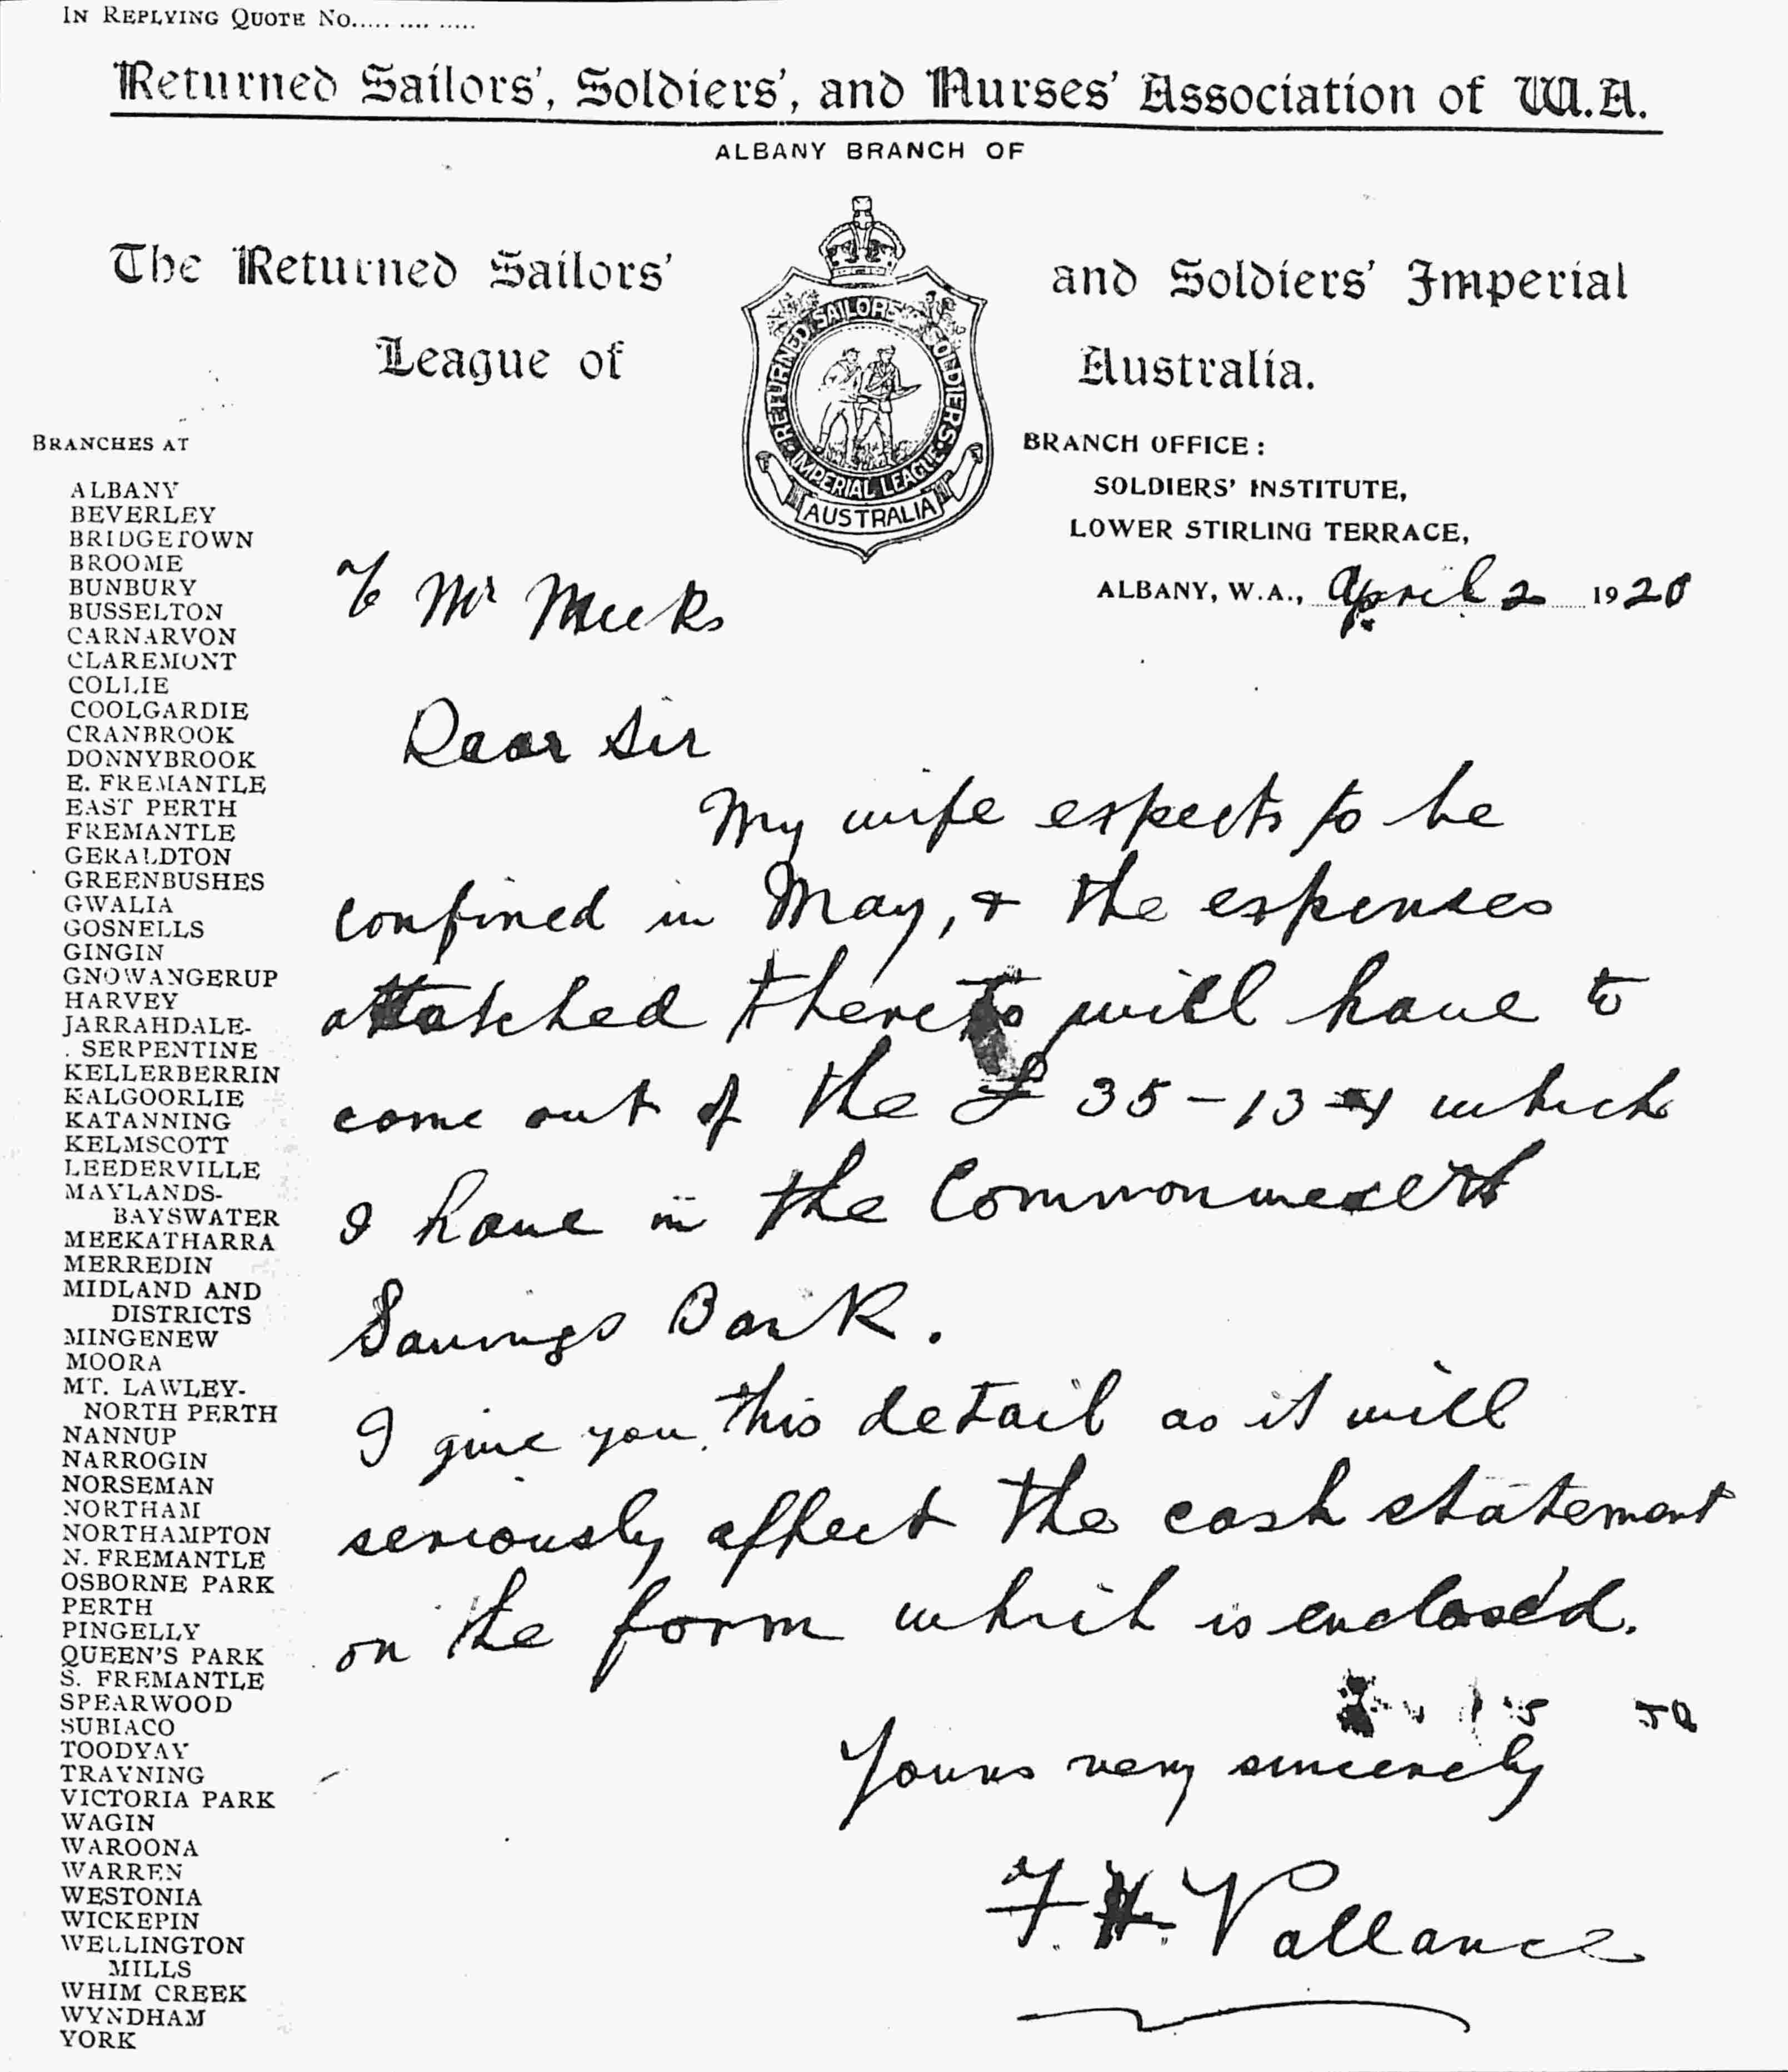 IN REPLYING QUOTE No..... .... .....
Returned Sailors', Soldiers', and Nurses' Association of W.A.
ALBANY BRANCH OF
The Returned Sailors' and Soldiers' Imperial
League of Australia.
RETURNED SAILORS SOLDIERS
IMPERIAL LEAGUE
AUSTRALIA
BRANCH OFFICE:
SOLDIERS' INSTITUTE,
LOWER STIRLING TERRACE,
ALBANY, W.A., April 2 1920
BRANCHES AT
ALBANY
BEVERLEY
BRIDGETOWN
BROOME
BUNBURY
BUSSELTON
CARNARVON
CLAREMONT
COLLIE
COOLGARDIE
CRANBROOK
DONNYBROOK
E. FREMANTLE
EAST PERTH
FREMANTLE
GERALDTON
GREENBUSHES
GWALIA
GOSNELLS
GINGIN
GNOWANGERUP
HARVEY
JARRAHDALE-
SERPENTINE
KELLERBERRIN
KALGOORLIE
KATANNING
KELMSCOTT
LEEDERVILLE
MAYLANDS-
BAYSWATER
MEEKATHARRA
MERREDIN
MIDLAND AND
DISTRICTS
MINGENEW
MOORA
MT. LAWLEY-
NORTH PERTH
NANNUP
NARROGIN
NORSEMAN
NORTHAM
NORTHAMPTON
N. FREMANTLE
OSBORNE PARK
PERTH
PINGELLY
QUEEN'S PARK
S. FREMANTLE
SPEARWOOD
SUBIACO
TOODYAY
TRAYNING
VICTORIA PARK
WAGIN
WAROONA
WARREN
WESTONIA
WICKEPIN
WELLINGTON
MILLS
WHIM CREEK
WYNDHAM
YORK
To Mr Meeks
Dear Sir
My wife expects to be
confined in May, & the expenses
attatched thereto will have to
come out of the £ 35-13-4 which
I have in the Commonwealth
Savings Bank.
I give you this detail as it will
seriously affect the cash statement
on the form which is enclosed.
Yours very sincerely
F. H. Vallance